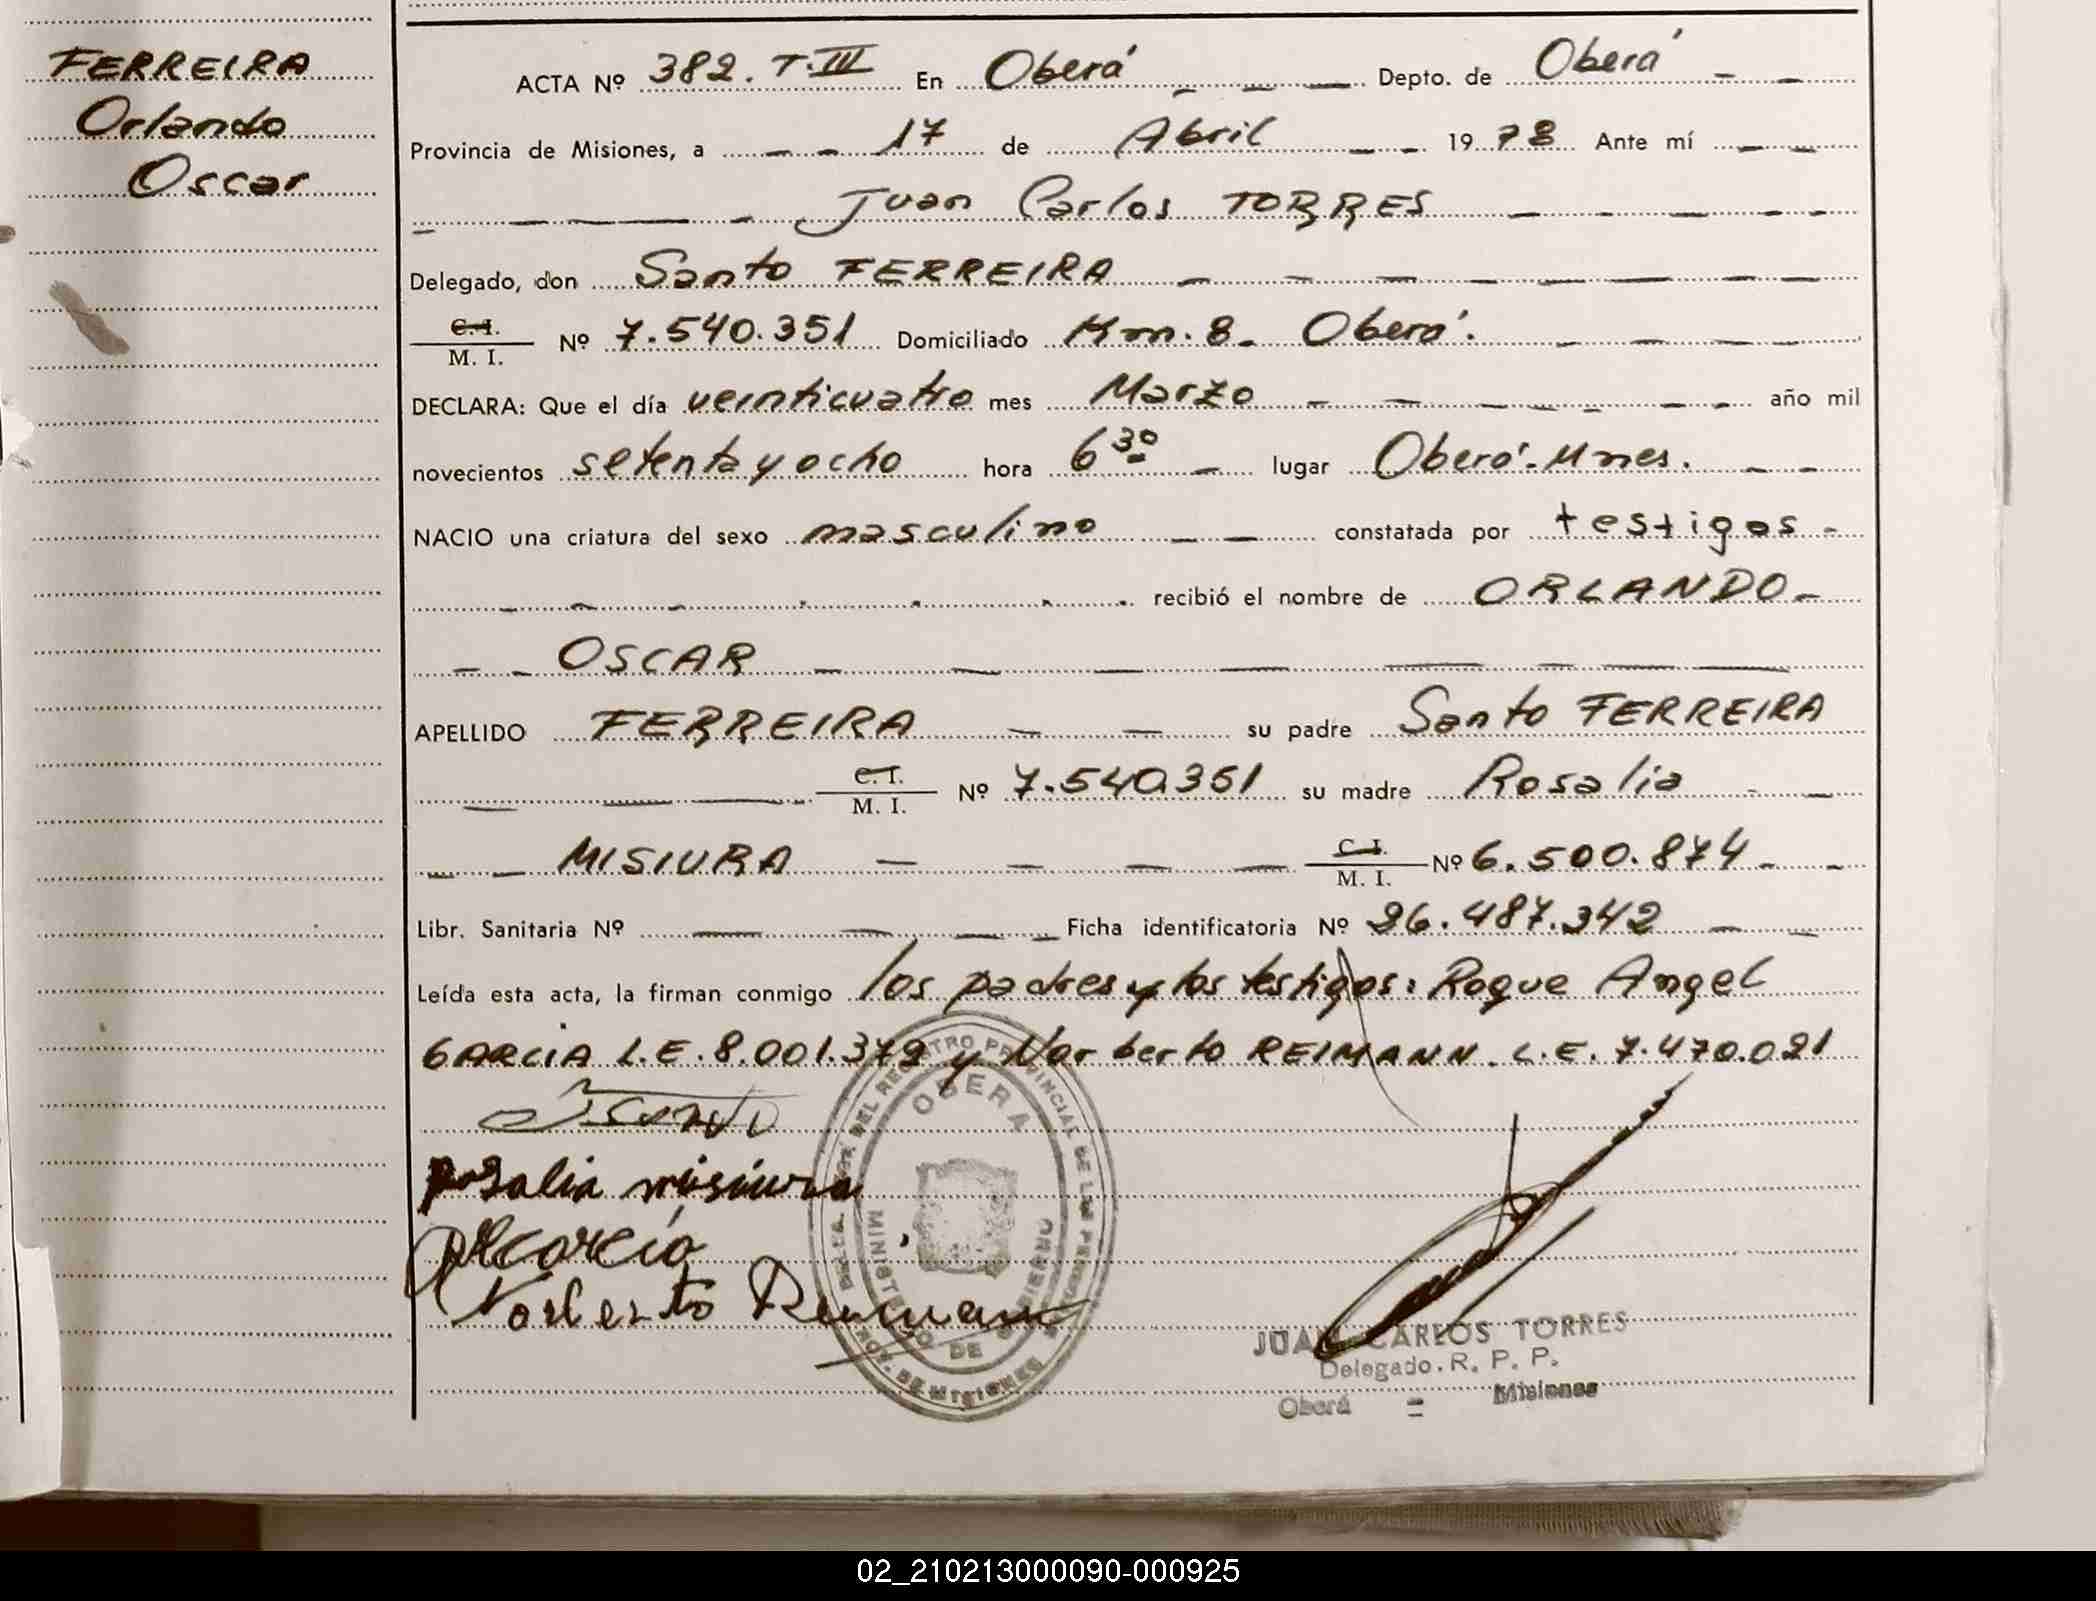 FERREIRA
Orlando
Oscar
ACTA Nº 382. T. III En Oberá Depto. de Oberá
Provincia de Misiones, a 17 de Abril 1978 Ante mí
Juan Carlos TORRES
Delegado, don Santo FERREIRA
C. I.
M. I. Nº 7.540.351 Domiciliado Km. 8 - Oberá.
DECLARA: Que el día veinticuatro mes Marzo año mil
novecientos setenta y ocho hora 6 30 lugar Oberá - Mnes.
NACIO una criatura del sexo masculino constatada por testigos -
recibió el nombre de ORLANDO -
OSCAR
APELLIDO FERREIRA su padre Santo FERREIRA
C. I.
M. I. Nº 7.540.351 su madre Rosalia
MISIURA C. I.
M. I. Nº 6.500.874
Libr. Sanitaria Nº Ficha identificatoria Nº 26.487.342
Leída esta acta, la firman conmigo los padres y los testigos: Roque Angel
GARCIA L.E. 8.001.372 y Norberto REIMANN. L.E. 7.470.021
rosalia misiura
Norberto Reimann
OBERA
MINISTERIO DE GOBIERNO
PROV. DE MISIONES
JUAN CARLOS TORRES
Delegado. R. P. P.
Oberá = Misiones
02_210213000090-000925